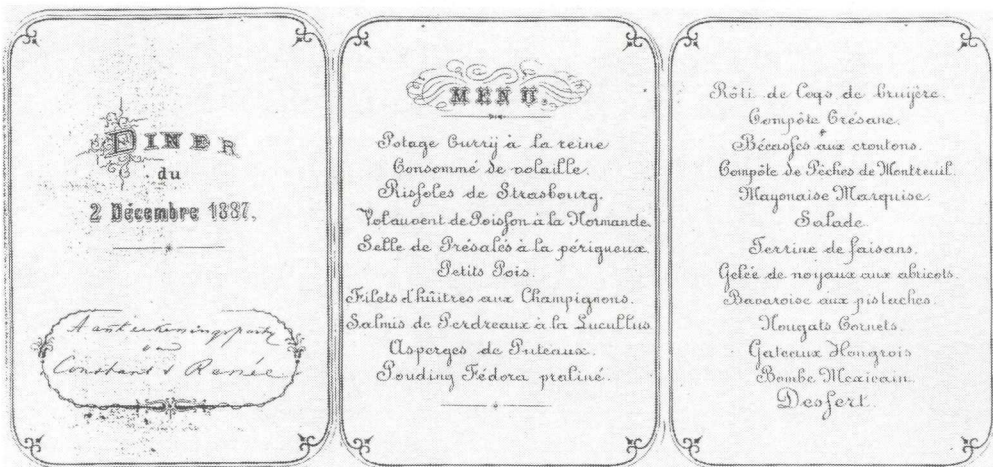 DINER
du
2 Décembre 1887,
Aanteekeningsparty
van
Constant & Renée
MENU.
Potage Currij à la reine
Consommé de volaille.
Risfoles de Strasbourg.
Volauvent de Poisfon à la Normande.
Selle de Présalés à la périgueux.
Petits Pois.
Filets d'hûitres aux Champignons.
Salmis de Perdreaux à la Lucullus
Asperges de Puteaux.
Pouding Fédora praliné.
Rôti de Coqs de bruijère.
Compôte Crésane.
Bécasfes aux croutons.
Compôte de Pêches de Montreuil.
Mayonaise Marquise.
Salade
Terrine de faisans.
Gelée de noyaux aux abricots.
Bavaroise aux pistaches.
Nougats Cornets.
Gateaux Hongrois
Bombe Mexicain.
Desfert.